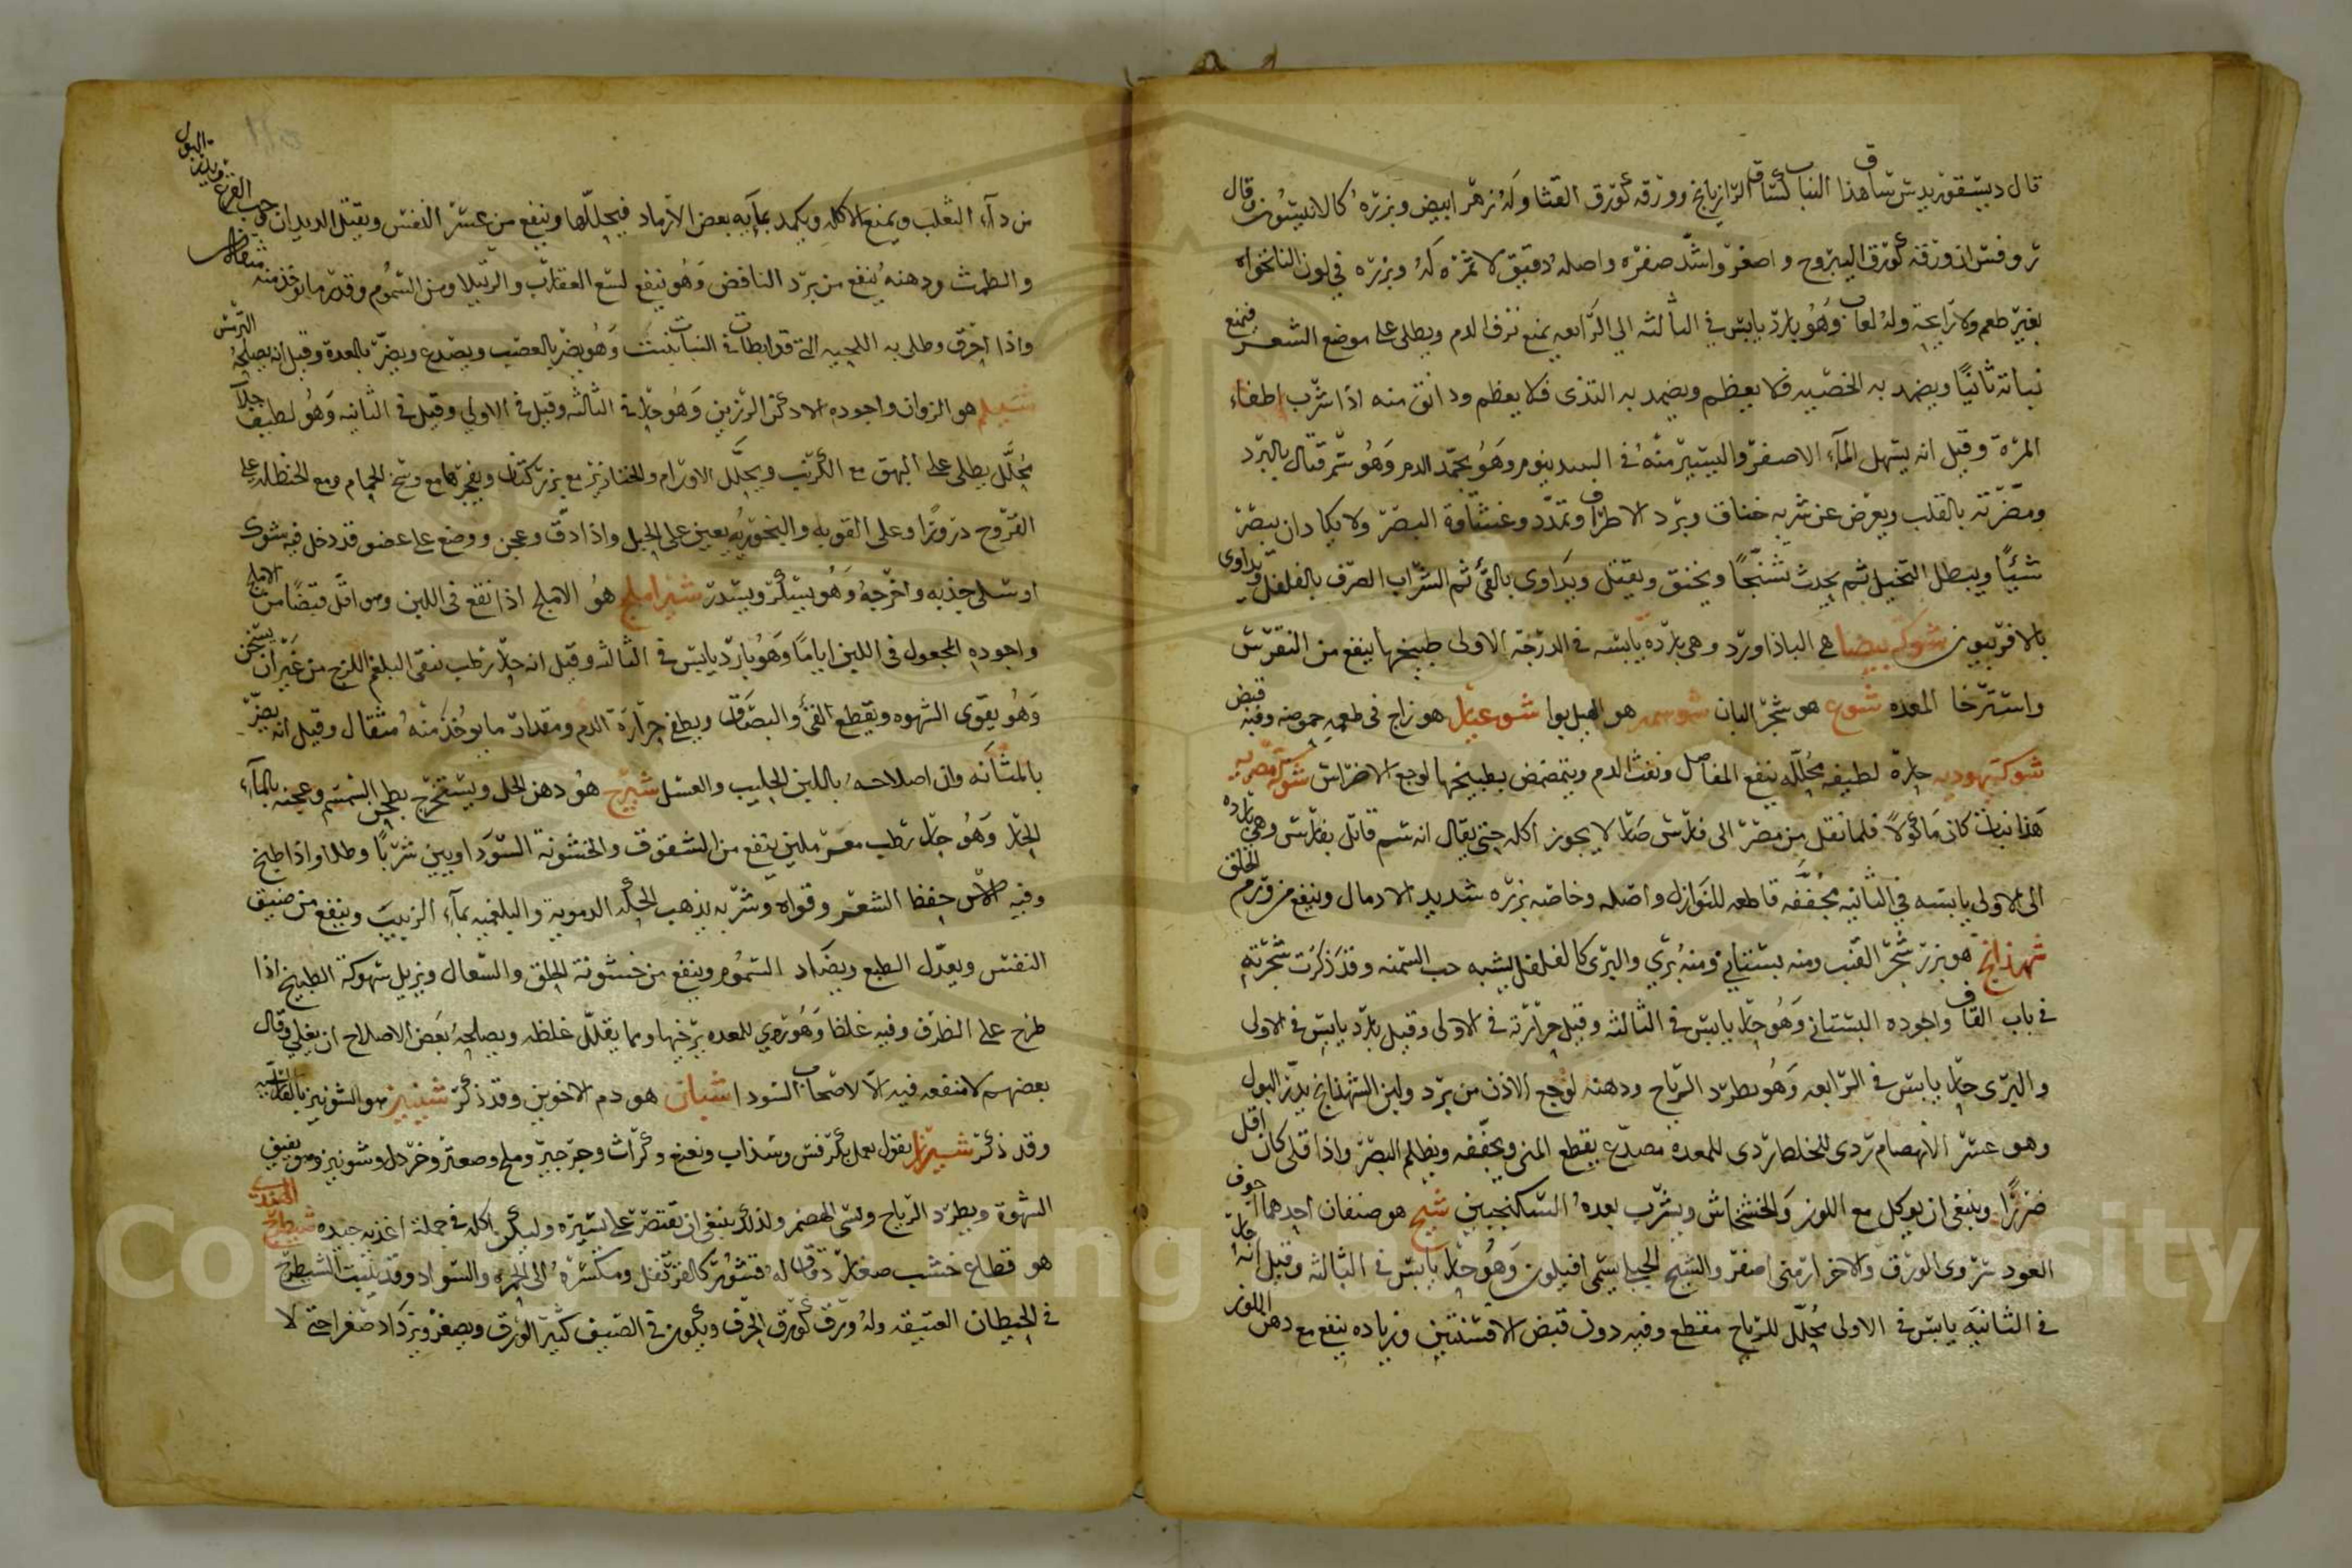 قال ديسقوريدس ساق هذا النبات كساق الرازيانج وورقه كورق القثا وله زهر ابيض وبزره كالانيسون وقال
روفس ان ورقه كورق اليبروح واصغر واشد صفره واصله دقيق لا ثمره له وبزره في لون النانخواه
بغير طعم ولا رايحة وله لعاب وهو بارد يابس في الثالثه الي الرابعه يمنع نزف الدم ويطلى على موضع الشعر فيمنع
نباته ثانيًا ويضمد به الخصيه فلا يعظم ويضمد به الثدى فلا يعظم ودانق منه اذا شرب اطفاء
المرة وقيل انه يسهل الماء الاصفر واليسير منه في السد ينوم وهو يجمد الدم وهو سم قتال بالبرد
ومضرته بالقلب ويعرض عن شربه خناق وبرد الاطراف وتمدد وغشاوة البصر ولا يكاد ان يبصر
شيئًا ويبطل التخيل ثم يحدث تشنجًا ويخنق ويقتل ويداوى بالقئ ثم الشراب الصرف بالفلفل ويداوى
بالافربيون شوكة بيضا هى الباذاورد وهى بارده يابسه في الدرجة الاولى طبيخها ينفع من النقرس
واسترخا المعده شوع هو شجر البان شوسمه هو الهيل بوا شوعبار هو زاج في طعمه حموضه وفيه قبض
شوكة يهوديه حارة لطيفه محلله ينفع المفاصل ونفث الدم ويتمضمض بطبيخها لوجع الاضراس شوكة مصريه
هذا نبات كان مأكولا فلما نقل من مصر الى فارس صار لا يجوز اكله حتى يقال انه سم قاتل بفارس وهي بارده
الى الاولى يابسه في الثانيه مجففه قاطعه للنوازل واصله وخاصه بزره شديد الادمال وينفع من ورم الحلق
شهدانج هو بزر شجر القنب ومنه بستانى ومنه بري والبرى كالفلفل يشبه حب السمنه وقد ذكرت شجرته
في باب القاف واجوده البستانى وهو حار يابس في الثالثه وقيل حرارته في الاولى وقيل بارد يابس في الاولى
والبرى حار يابس في الرابعه وهو يطرد الرياح ودهنه لوجع الاذن من برد ولبن الشهدانج يدر البول
وهو عسر الانهضام ردى الخلط ردى للمعده مصدع يقطع المنى ويجففه ويظلم البصر واذا قلى كان اقل
ضررًا وينبغى ان يوكل مع اللوز والخشخاش ويشرب بعده السكنجبين شيح هو صنفان احدهما اجوف
العود سروى الورق والاخر ارمنى اصفر والشيح الجبلى يسمى افيلون وهو حار يابس في الثالثه وقيل انه حار
في الثانيه يابس في الاولى محلل للرياح مقطع وفيه دون قبض الافسنتين وزياده ينفع مع دهن اللوز
من دآء الثعلب ويمنع الاكله ويكمد بمآيه بعض الارماد فيحللها وينفع من عسر النفس ويقتل الديدان وحب القرع ويدر البول
والطمث ودهنه ينفع من برد النافض وهو ينفع لسع العقارب والرتيلا ومن السموم وقدر ما يوخذ منه مثقال
واذا احرق وطلى به اللحيه التى قد ابطات في النبات نبتت وهو يضر بالعصب ويصدع ويضر بالمعدة وقيل انه يصلحه الترمس
شيلم هو الزوان واجوده الادكن الرزين وهو حار في الثالثه وقيل في الاولي وقيل في الثانيه وهو لطيف جلآ
محلل يطلى على البهق مع الكبريت ويحلل الاورام والخنازير مع بزر كتان ويفجرها مع وسخ الحمام ومع الحنطه على
القروح درورًا وعلى القوبه والبخور به يعين على الحبل واذا دق وعجن ووضع على عضو قد دخل فيه شوك
او سلى جذبه واخرجه وهو يسكر ويسدر شيراملج هو الاملج اذا نقع في اللبن وهو اقل قبضًا من الاملج
واجوده المجعول في اللبن ايامًا وهو بارد يابس في الثالثه وقيل انه حار رطب ينقى البلغم اللزج من غير ان يسخن
وهو يقوى الشهوه ويقطع القئ والبصاق ويطفي حرارة الدم ومقدار ما يوخذ منه مثقال وقيل انه يضر
بالمثانه وان اصلاحه باللبن الحليب والعسل شيرج هو دهن الحل ويستخرج بطحن السمسم وعجنه بالمآء
الحار وهو حار رطب مغر ملين ينفع من الشقوق والخشونة السوداويين شربًا وطلا واذا طبخ
وفيه الاس حفظ الشعر وقواه وشربه يذهب الحكه الدمويه والبلغميه بماء الزبيب وينفع من ضيق
النفس ويعدل الطبع ويضاد السموم وينفع من خشونة الحلق والسعال ويزيل سهوكة الطبيخ اذا
طرح على الظرف وفيه غلظ وهو ردي للمعده يرخيها ومما يقلل غلظه ويصلحه بعض الاصلاح ان يغلي وقال
بعضهم لا منفعه فيه الا لاصحاب السودا شيان هو دم الاخوين وقد ذكر شينيز هو الشونيز بالفارسيه
وقد ذكر شيراز بقول يعمل بكرفس وسذاب ونعنع وكراث وجرجير وملح وصعتر وخردل وشونيز وهو يفتق
الشهوة ويطرد الرياح وسئ الهضم ولذلك ينبغى ان يقتصر على يسيره وليكن اكله في جملة اغذيه جيده شيطرج الهندى
هو قطاع خشب صغار دقاق له قشور كالقرنفل ومكسره الى الحمره والسواد وقد ينبت الشيطرج
في الحيطان العتيقه وله ورق كورق الحرف ويكون في الصيف كثير الورق ويصفر ويزداد صغرا حتى لا
Copyright © King Saud University